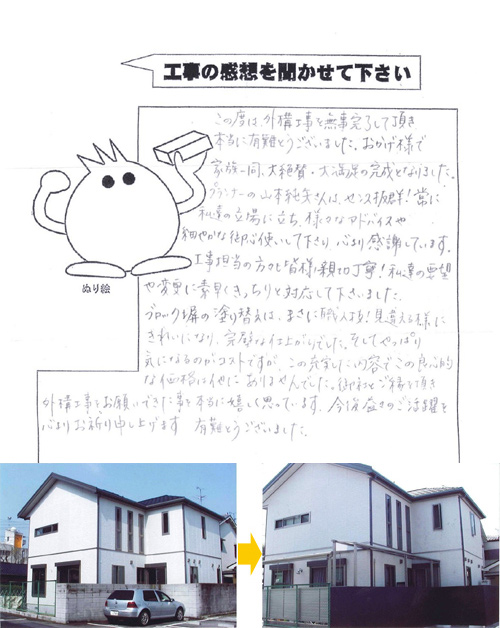 工事の感想を聞かせて下さい
この度は、外構工事を無事完了して頂き
本当に有難とうございました。おかげ様で
家族一同、大絶賛・大満足の完成となりました。
プランナーの山本純矢さんは、センス抜群!常に
私達の立場に立ち、様々なアドバイスや
細やかな御心使いして下さり 心より感謝しています。
工事担当の方々も皆様親切丁寧!私達の要望
や変更に素早くきっちりと対応して下さいました。
ブロック塀の塗り替えは、まさに職人技!見違える様に
きれいになり、完璧な仕上がりでした。そしてやっぱり
気になるのがコストですが、この充実した内容でこの良心的
な価格は他にありませんでした。御社とご縁を頂き
外構工事をお願いできた事を本当に嬉しく思っています。今後益々のご活躍を
心よりお祈り申し上げます 有難とうございました。
ぬり絵